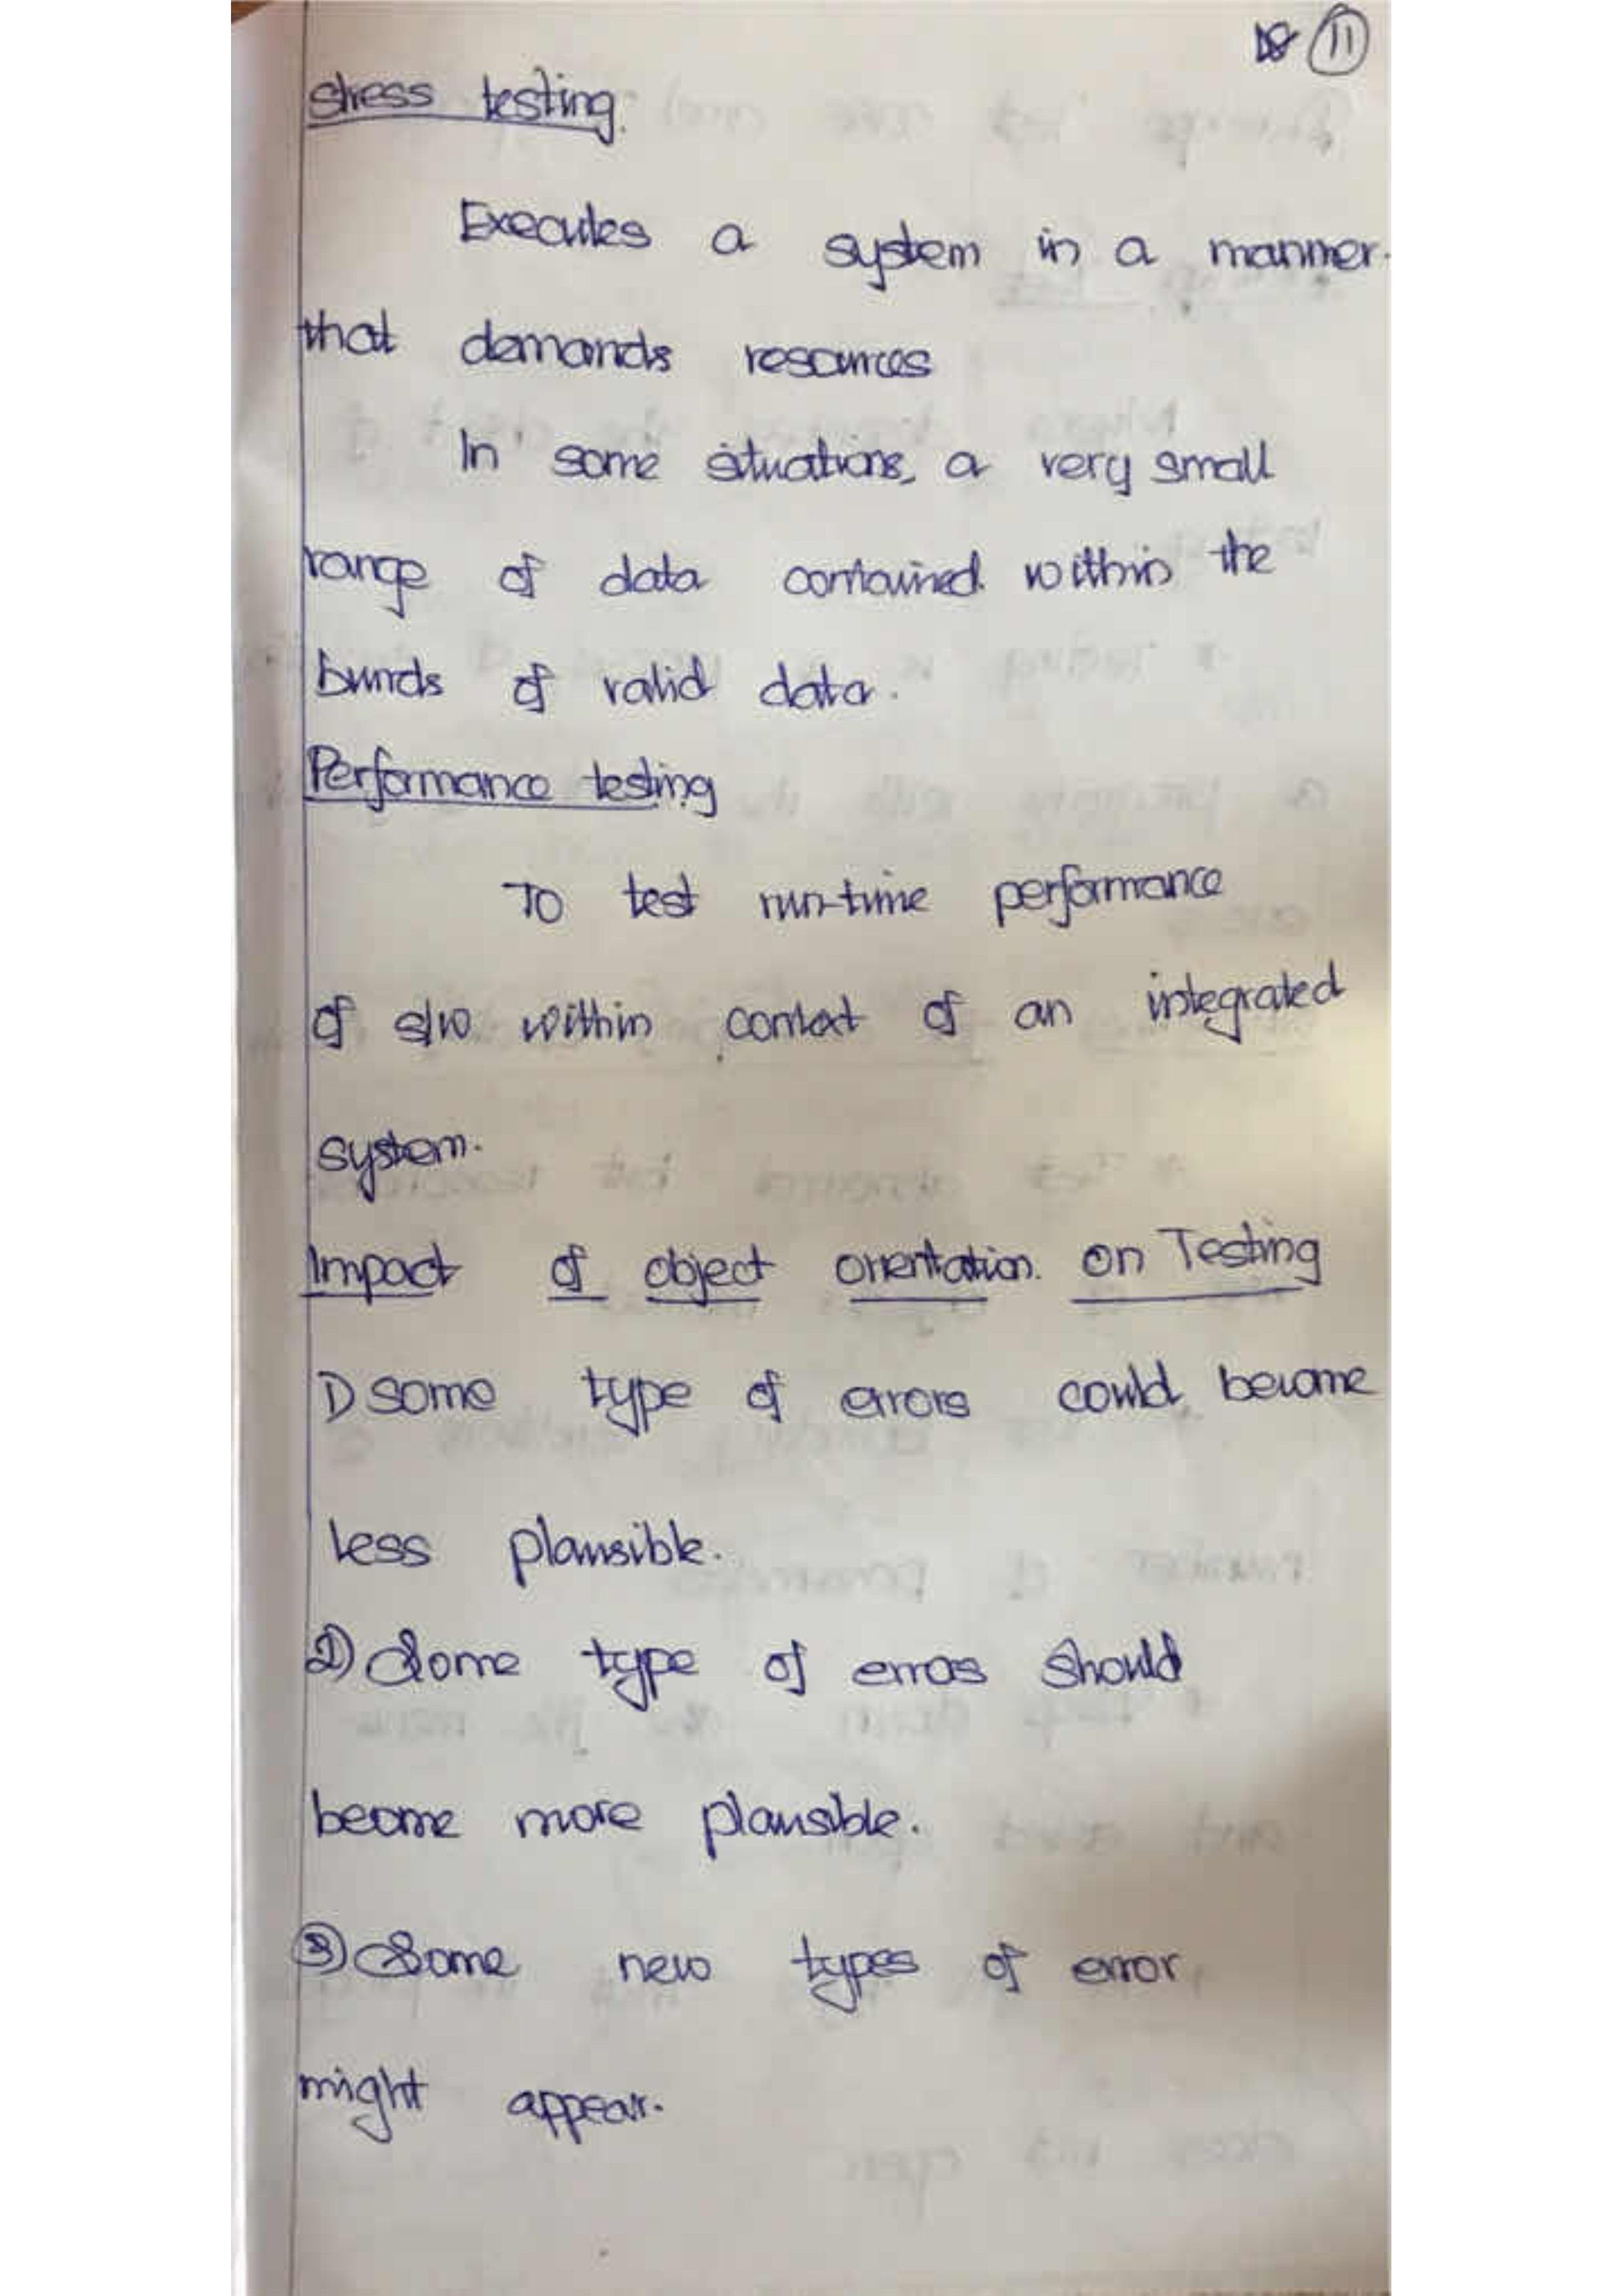 11
Stress testing.
Executes a system in a manner.
that demands resources
In some situations, a very small
range of data contained within the
bunds of valid data.
Performance testing
To test run-time performance
of s/w within context of an integrated
system.
Impact of object orientation. on Testing
1) some type of errors could become
less plausible.
2) Some type of erros should
become more plausible.
3) Some new types of error
might appear.